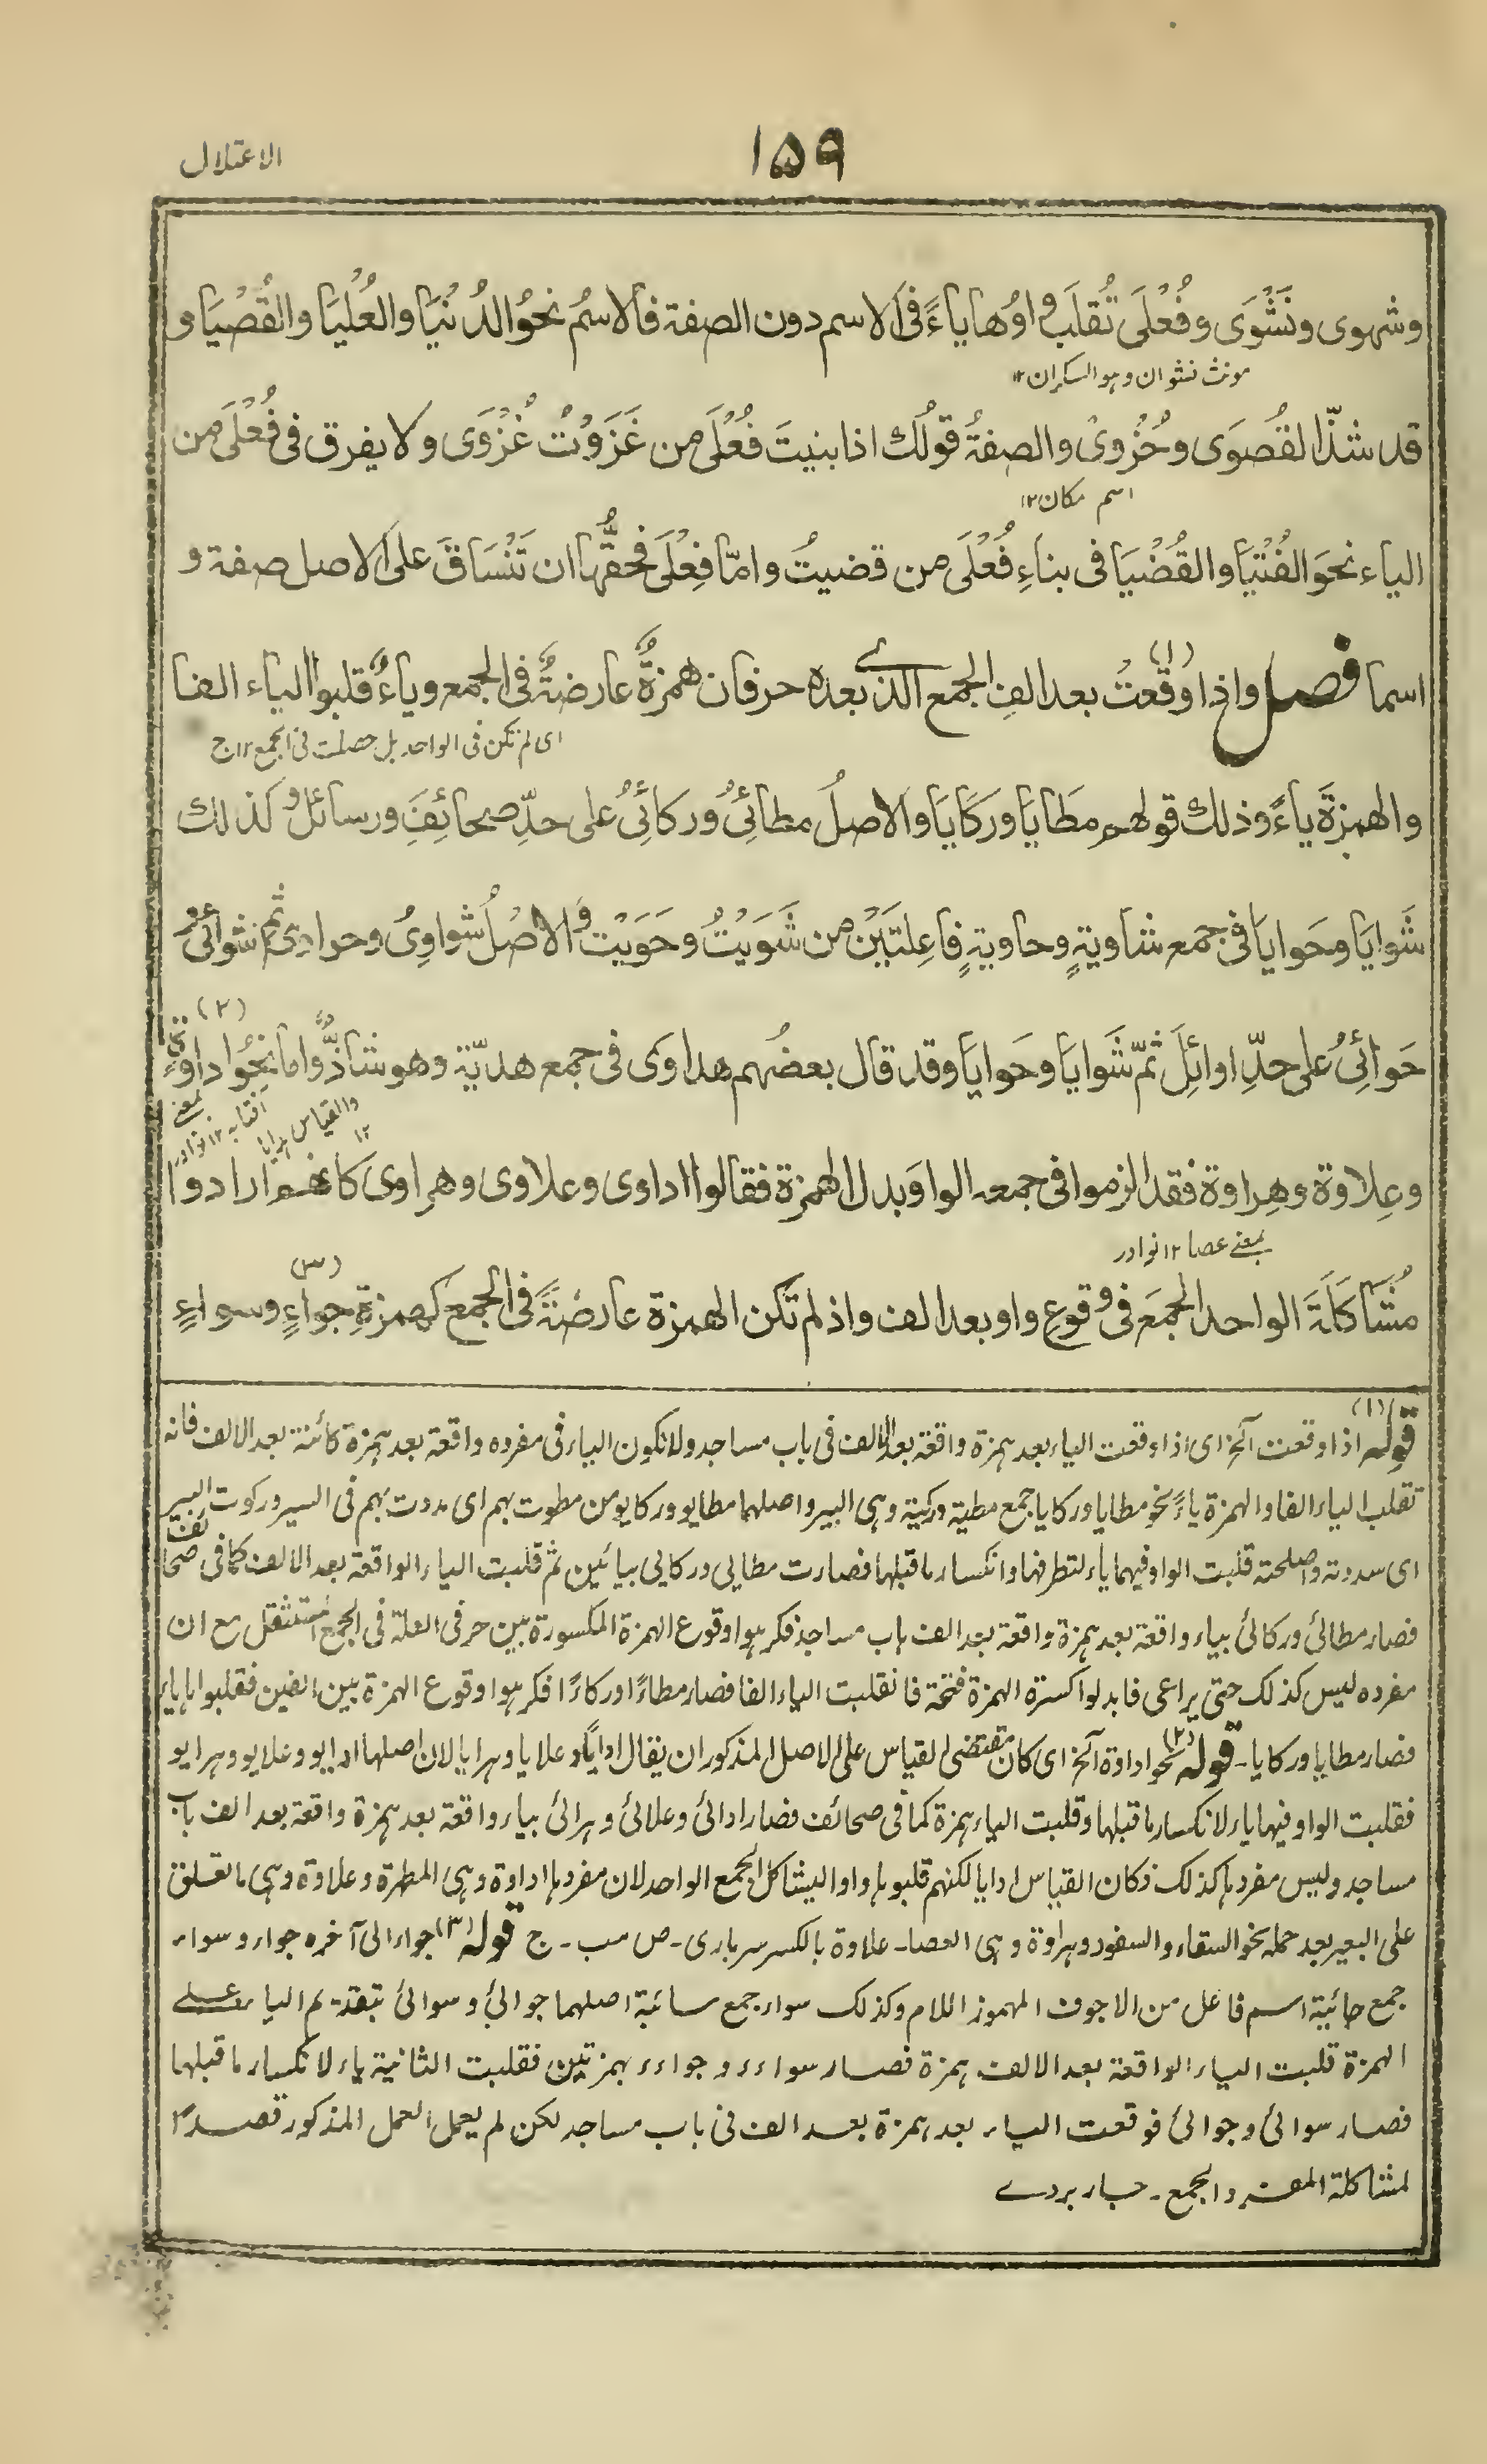 ١٥٩
الاعتلال
وشهوى ونَشْوَى وفُعْلَى تُقلَب واوُها ياءً فى الاسم دون الصفة فالاسمُ نحوُ الدُّنْيَا والعُلْيَا والقُصْيَا و
مونث نشوان وهو السكران ١٢
قد شذّ القُصوَى وحُزْوى والصفةُ قولك اذا بنيتَ فُعْلَى من غَزَوْتُ غُزْوَى ولا يفرق فى فُعْلَى من
اسم مكان ١٢
الياء نحوَ الفُتْيَا والقُضْيَا فى بناءِ فُعْلَى من قضيتُ وامّا فِعْلَى فحقُّها ان تَنْسَاقَ على الاصل صفة و
اسما فصل واذا وقعتُ (١) بعد الفِ الجمع الذى بعده حرفان همزةٌ عارضةٌ فى الجمع وياءٌ قلبوا الياء الفا
اى لم تكن فى الواحد بل حصلت فى الجمع ١٢ ج
والهمزةَ ياءً وذلك قولهم مَطَايَا ورَكَايَا والاصلُ مطائِىُ وركائِىُ على حدِّ صحائِفَ ورسائلَ وكذلك
شَوايَا وحَوايا فى جمع شاويةٍ وحاويةٍ فاعِلتَيْن من شَوَيْتُ وحَوَيْت والاصْلُ شواوِىُ وحواوِىُ ثم شوائىُ و
حَوائِىُ على حدِّ اوائِلَ ثمّ شَوايَا وحَوايَا وقد قال بعضُهم هداوَى فى جمع هديّة وهو شاذٌّ واما نحوُ اداوةٍ (٢)
والقياس هدايا ١٢
بمعنے آفتابه ١٢ نوادر
وعِلاوة وهِراوة فقد الزموا فى جمعه الواوَ بدل الهمزة فقالوا اداوى وعلاوى وهراوى كانهم ارادوا
بمعنے عصا ١٢ نوادر
مُشَاكَلَةَ الواحد الجمعَ فى وقوعِ واو بعد الف واذ لم تكن الهمزة عارضةً فى الجمع كهمزةِ جواءٍ (٣) وسواءٍ
قوله (١) اذا وقعت آلخ اى اذا وقعت الياء بعد همزة واقعة بعد الالف فى باب مساجد ولا تكون الياء فى مفرده واقعة بعد همزة كائنة بعد الالف فانه
تقلب الياء الفا والهمزة ياءً نحو مطايا وركايا جمع مطية وركية وهى البير واصلهما مطايو وركايو من مطوت بهم اى مددت بهم فى السير وركوت البير
اى سددته واصلحته قلبت الواو فيهما ياء لتطرفها وانكسار ما قبلها فصارت مطايى وركايى بيائين ثم قلبت الياء الواقعة بعد الالف كما فى صحائف
فصار مطائى وركائى بياء واقعة بعد همزة واقعة بعد الف باب مساجد فكرهوا وقوع الهمزة المكسورة بين حرفى العلة فى الجمع المستثقل مع ان
مفرده ليس كذلك حتى يراعى فابدلوا كسرة الهمزة فتحة فانقلبت الياء الفا فصار مطاءًا وركاءًا فكرهوا وقوع الهمزة بين الفين فقلبوها ياء
فصار مطايا وركايا ـ قوله (٢) نحو اداوة آلخ اى كان مقتضى القياس على الاصل المذكور ان يقال ادايا وعلايا وهرايا لان اصلها ادايو وعلايو وهرايو
فقلبت الواو فيها ياء لانكسار ما قبلها وقلبت الياء همزة كما فى صحائف فصار ادائى وعلائى وهرائى بياء واقعة بعد همزة واقعة بعد الف باب
مساجد وليس مفردها كذلك فكان القياس ادايا لكنهم قلبوها واوا ليشاكل الجمع الواحد لان مفردها اداوة وهى المطهرة وعلاوة وهى ما تعلق
على البعير بعد حمله نحو السقاء والسفود وهراوة وهى العصا ـ علاوة بالكسر سربارى ـ ص مب ـ ج قوله (٣) جواء الى آخره جواء وسواء
جمع جائية اسم فاعل من الاجوف المهموز اللام وكذلك سواء جمع سائية اصلهما جوائئ وسوائئ بتقديم الياء على
الهمزة قلبت الياء الواقعة بعد الالف همزة فصار سواءء وجواءء بهمزتين فقلبت الثانية ياء لانكسار ما قبلها
فصار سوائى وجوائى فوقعت الياء بعد همزة بعد الف فى باب مساجد لكن لم يعمل العمل المذكور قصدًا
لمشاكلة المفرد الجمع ـ جاربردے